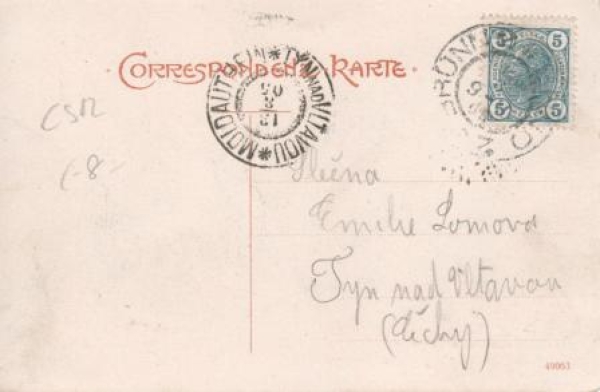 CORRESPONDENZ-KARTE.
MOLDAUTHEIN * TÝN NAD VLTAVOU *
12
8
05
BRÜNN
BRNO
5 5
5 5
ČSR
(-8-
Slečna
Emilie Lomova
Tyn nad Vltavou
(Čechy)
49063